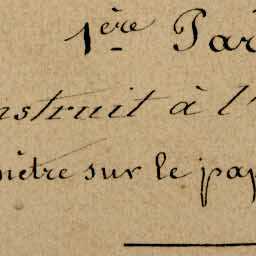 1ère Par
nstruit à l'
mètre sur le pap